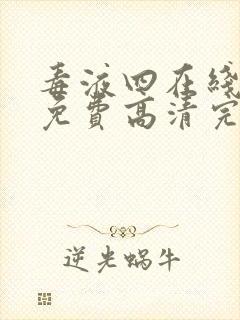 毒液四在线
免费高清完
逆光蜗牛